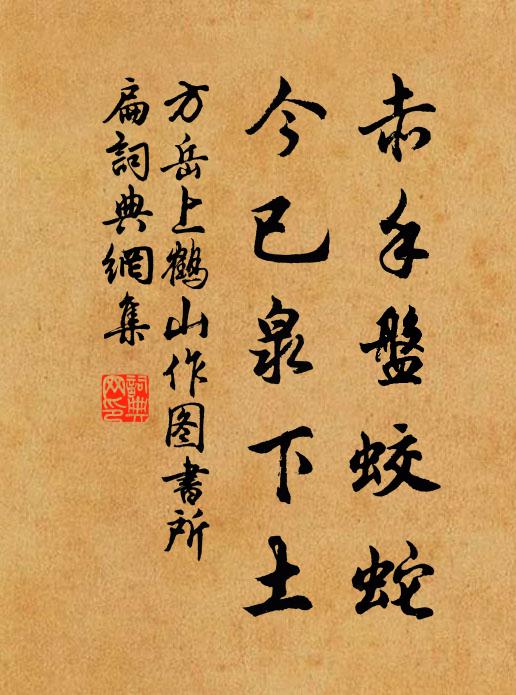 赤手盤蛟蛇
今已泉下土
方岳上鶴山作图書所
扁詞典網集
詞典网印